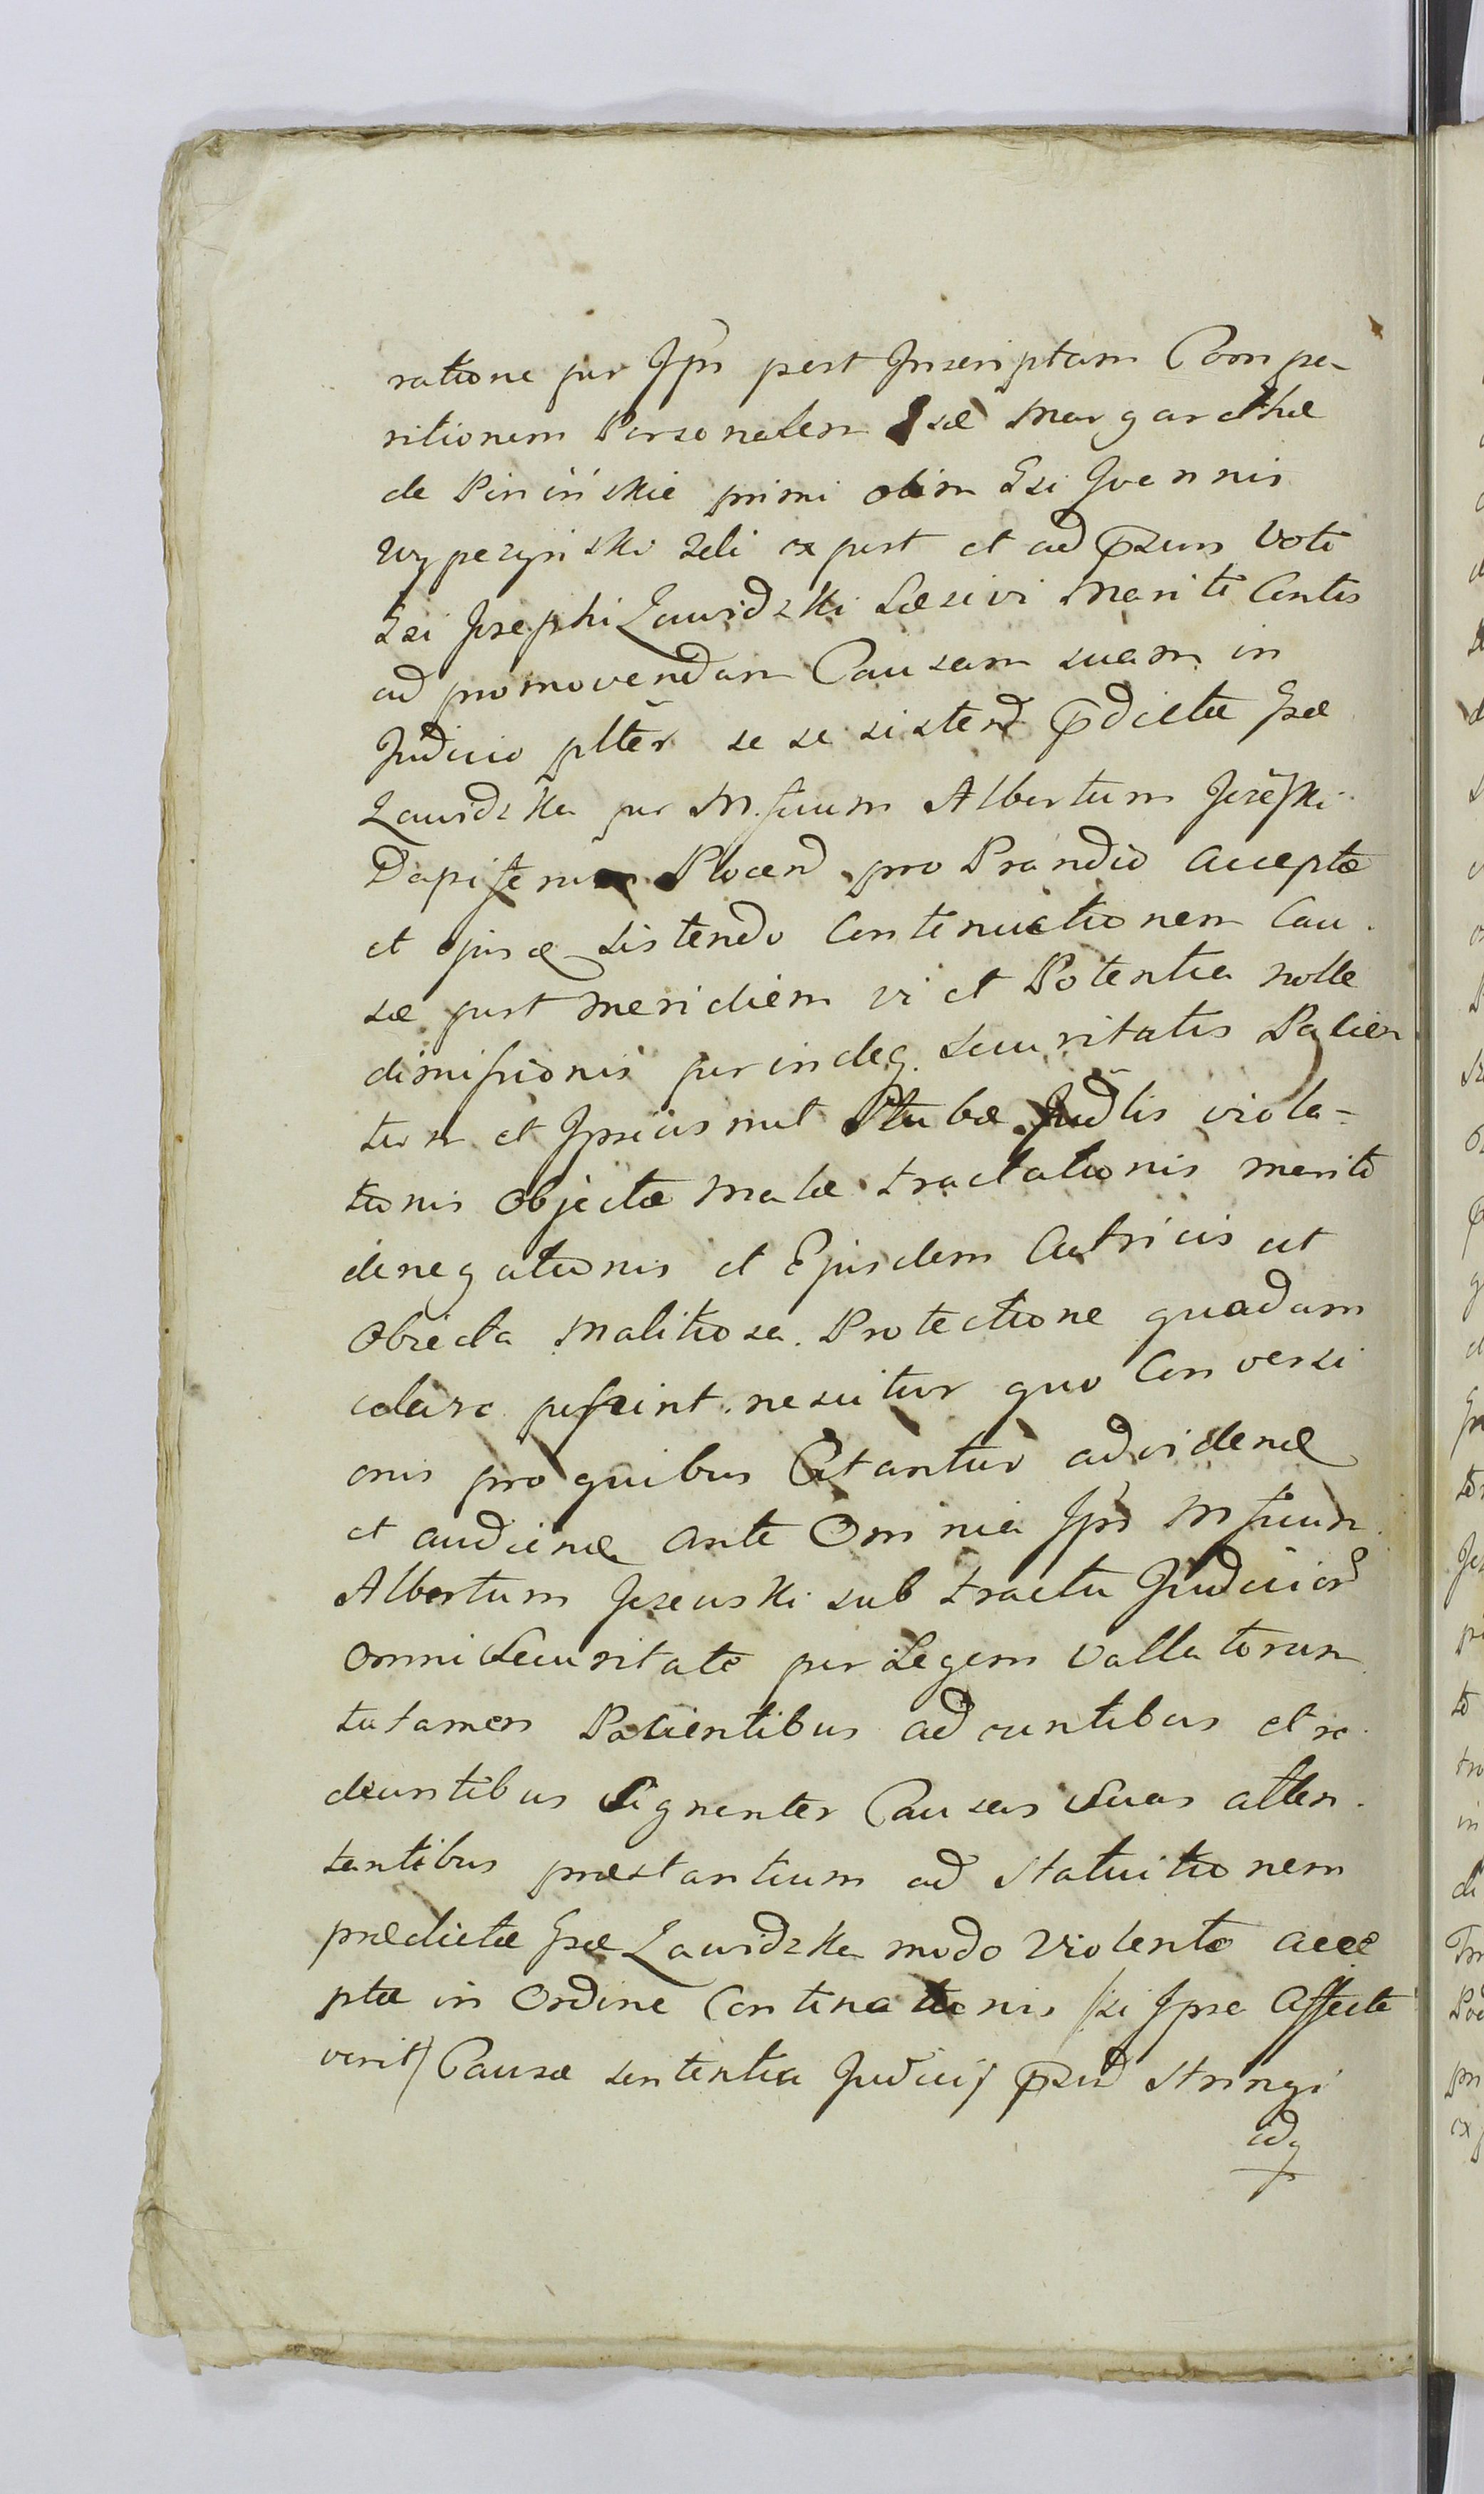 ratione per Ipm post Inscriptam Compa-
ritionem Personalem Gsæ Margarethæ
de Pininskie primi olim Gsi Joannis
Wypczynski Seli ex post et ad p̄sens Voti
Gsi Josephi Zawidzki Læsivi Mariti Contis
ad promovendam Causam suam in
Judicio pltēr se se sistend p̄dictæ Gsæ
Zawidzka per M. suum Albertum Jezeski
Dapiferum Plocen pro Prandio acceptæ
et ejusq sistendo Continuationem Cau.
sæ post meridiem vi et Potentia nolle
dimissionis per indeq. Securitatis Palien
tium et Ipsiusmet Stubæ Judlis viola=
tionis Objectæ malæ tractationis merito
denegationis et Ejusdem Actricis ut
Objecta Malitiosa Protectione quadam
celare possint nescitur quo Conversi
onis pro quibus Citantur ad videnđ
et audienđ ante Omnia Ips M suum
Albertum Jezewski sub tractu Judicior
omni Securitate per Legem Vallatorum
tutamen Pacientibus ad euntibus et re
deuntibus Signanter Causas Suas atten.
tantibus præstantium ad Statuitionem
prædictæ Gsæ Zawidzka modo violento acce
ptæ in Ordine Continationis /si Ipsa Affecta
verit/ Causæ sententia Judicij p̄sn Stringi
adq